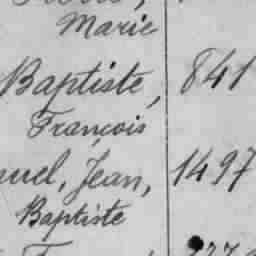 Marie
Baptiste, 841
François
uel, Jean, 1497
Baptiste